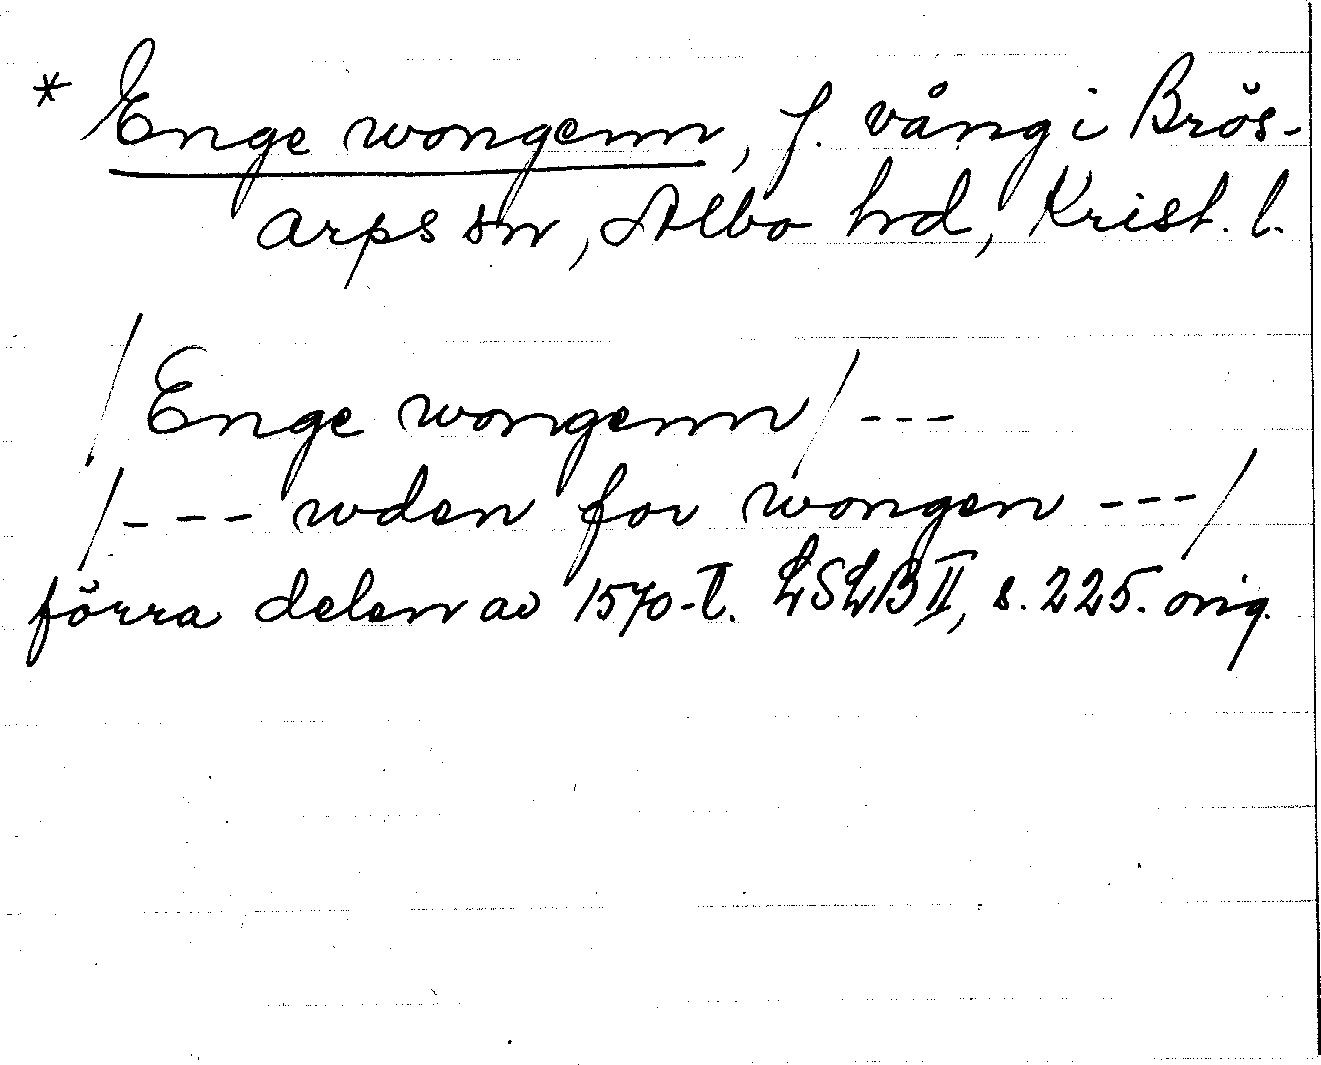 * Enge wongenn, f. vång i Brös-
arps sn, Albo hd, Krist. l.
/Enge wongenn/ ---
/--- wden for wongen ---/
förra delen av 1570-t. LSLB II, s. 225. orig.